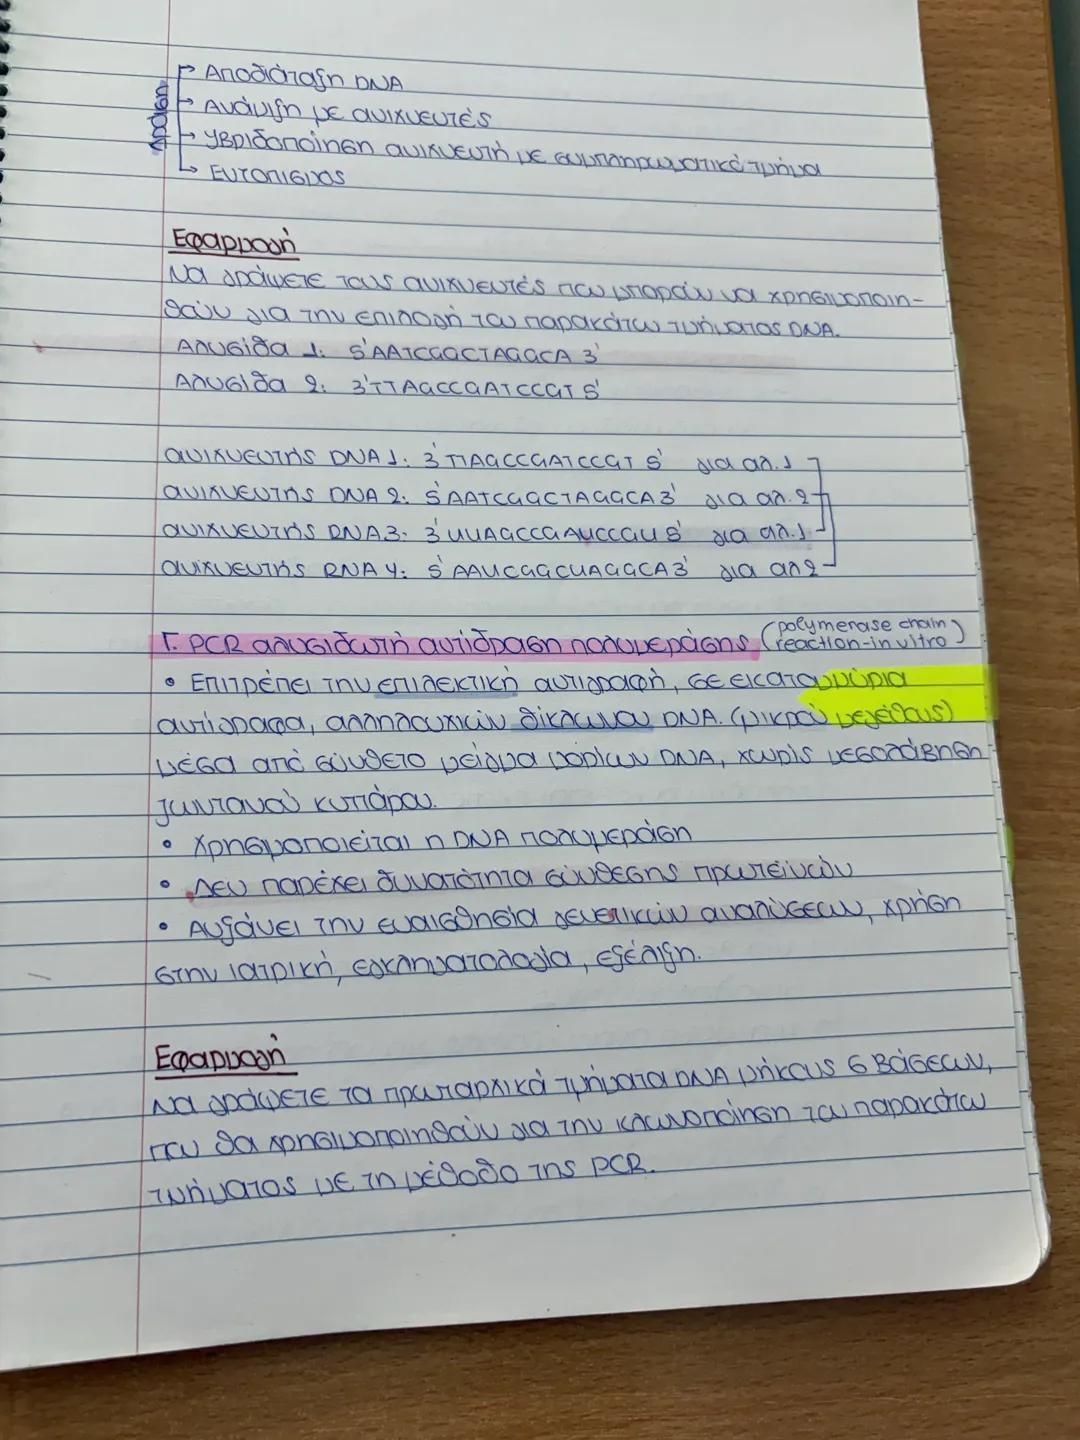 Δράση
Αποδιάταξη DNA
Ανάμιξη με ανιχνευτές
Υβριδοποίηση ανιχνευτή με συμπληρωματικό τμήμα
Εντοπισμός
Εφαρμογή
Να γράψετε τους ανιχνευτές που μπορούν να χρησιμοποιη-
θούν για την επιλογή του παρακάτω τμήματος DNA.
Αλυσίδα 1: 5'AATCGGCTAGGCA 3'
Αλυσίδα 2: 3'TTAGCCGATCCGT 5'
ανιχνευτής DNA 1: 3'TTAGCCGATCCGT 5' για αλ.1
ανιχνευτής DNA 2: 5'AATCGGCTAGGCA 3' για αλ.2
ανιχνευτής RNA 3: 3'UUAGCCGAUCCGU 5' για αλ.1
ανιχνευτής RNA 4: 5'AAUCGGCUAGGCA 3' για αλ2
Γ. PCR αλυσιδωτή αντίδραση πολυμεράσης (polymerase chain reaction-in vitro)
• Επιτρέπει την επιλεκτική αντιγραφή, σε εκατομμύρια
αντίγραφα, αλληλουχιών δίκλωνου DNA. (μικρού μεγέθους)
μέσα από σύνθετο μείγμα μορίων DNA, χωρίς μεσολάβηση
ζωντανού κυττάρου.
• Χρησιμοποιείται η DNA πολυμεράση
• Δεν παρέχει δυνατότητα σύνθεσης πρωτεϊνών
• Αυξάνει την ευαισθησία γενετικών αναλύσεων, χρήση
στην ιατρική, εγκληματολογία, εξέλιξη.
Εφαρμογή
Να γράψετε τα πρωταρχικά τμήματα DNA μήκους 6 βάσεων,
που θα χρησιμοποιηθούν για την κλωνοποίηση του παρακάτω
τμήματος με τη μέθοδο της PCR.